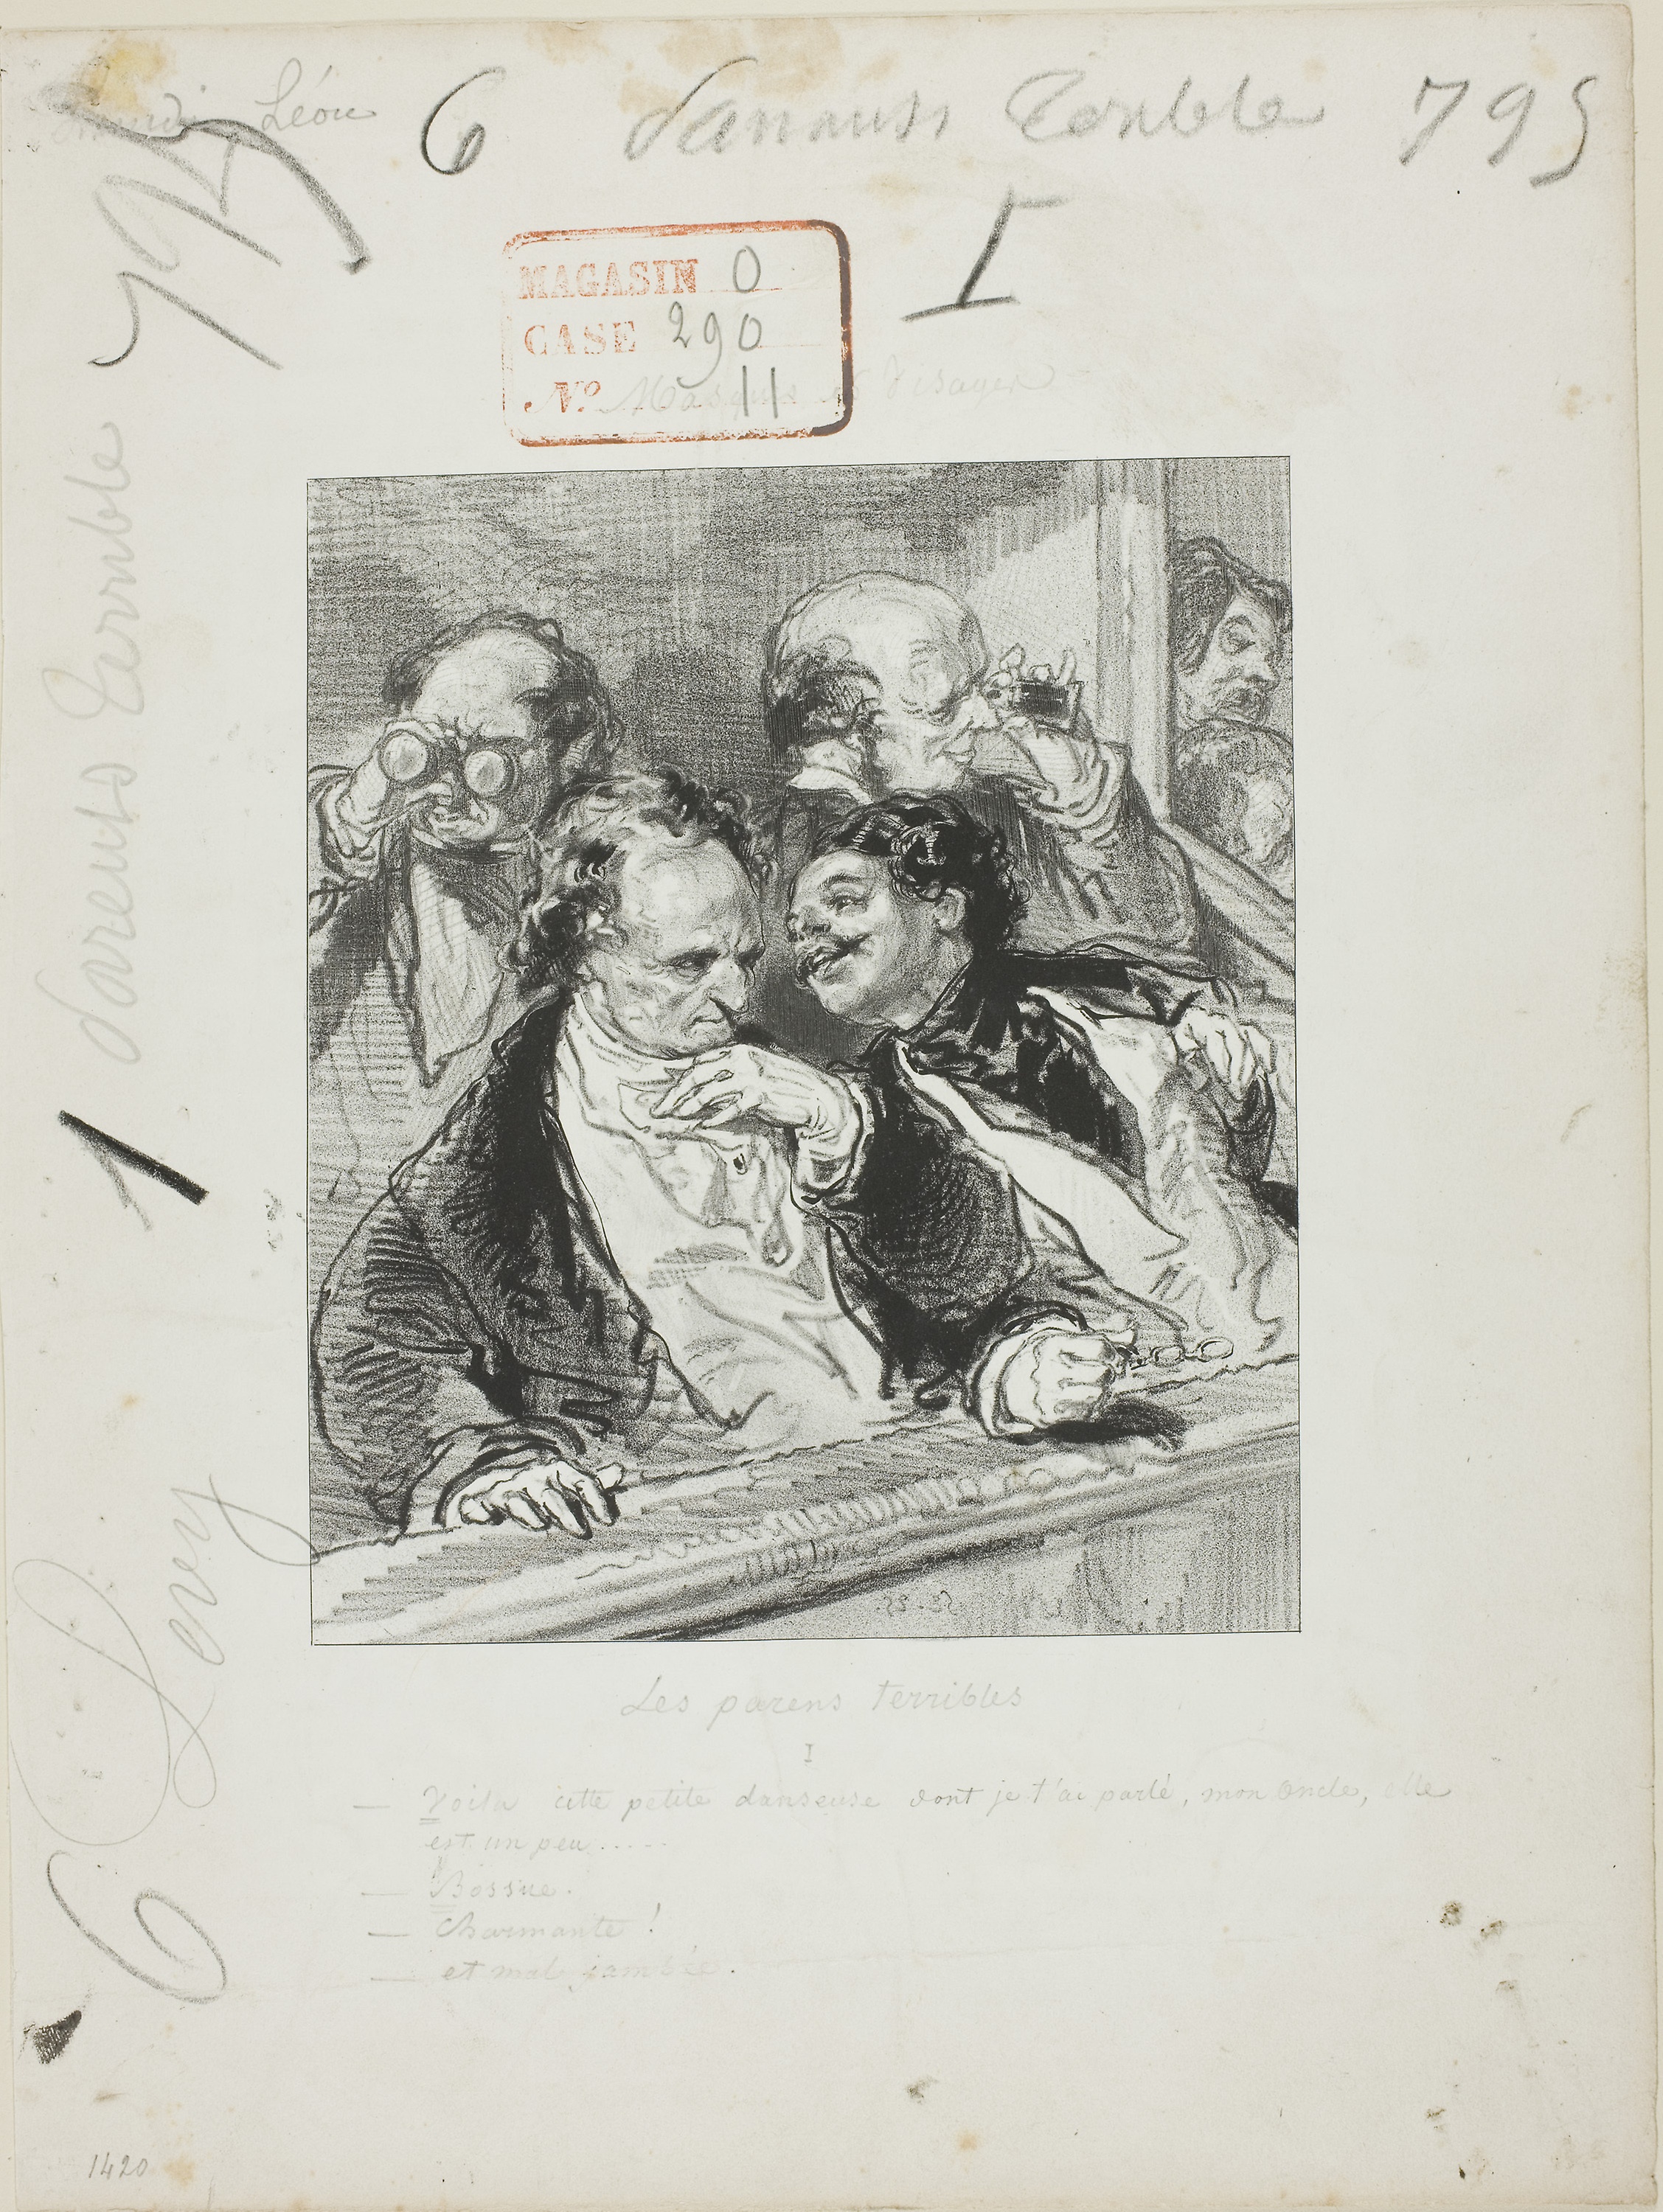 Léon
6 Parents Terrible 795
I
MAGASIN 0
CASE 290
Nº 11
Masques et Visages
795
Parents Terrible
1
Levy
6
Les parens terribles
I
— Voilà cette petite danseuse dont je t'ai parlé, mon oncle, elle
est un peu.....
— Bossue.
— Charmante !
— et mal jambée.
1420